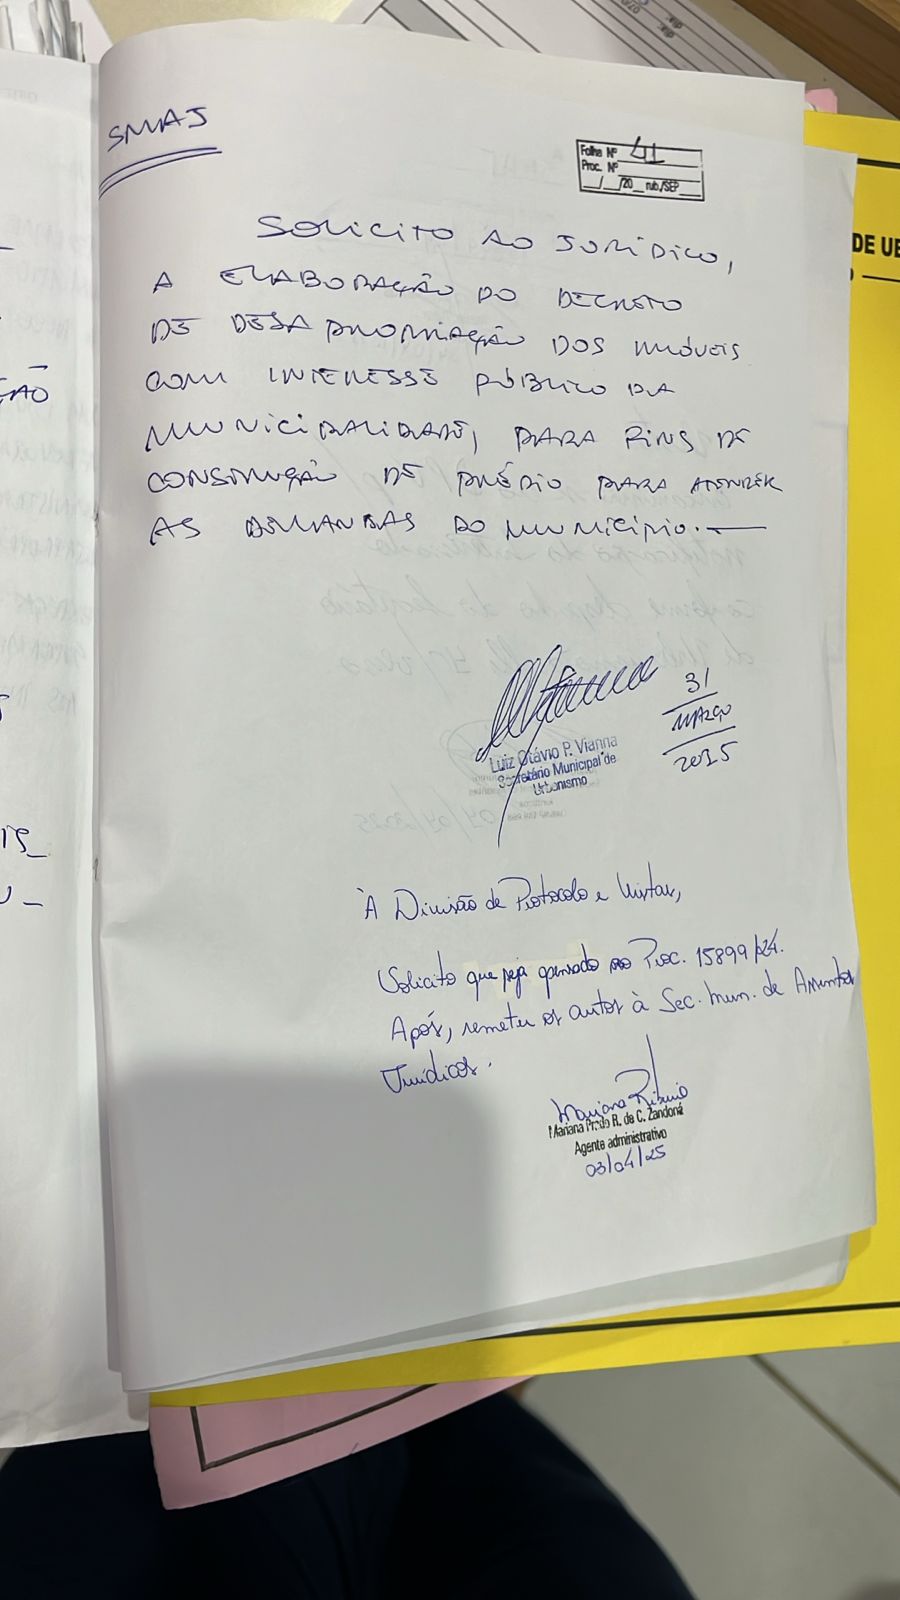 SMAJ
Folha Nº 41
Proc. Nº
__/__/20__ rub./SEP
SOLICITO AO JURÍDICO,
A ELABORAÇÃO DO DECRETO
DE DESAPROPRIAÇÃO DOS IMÓVEIS
COM INTERESSE PÚBLICO DA
MUNICIPALIDADE, PARA FINS DE
CONSTRUÇÃO DE PRÉDIO PARA ATENDER
AS DEMANDAS DO MUNICÍPIO.
31
MARÇO
2025
Luiz Otávio P. Vianna
Secretário Municipal de
Urbanismo
À Divisão de Protocolo e Vistas,
Solicito que seja apensado ao Proc. 15899/24.
Após, remeter os autos à Sec. Mun. de Assuntos
Jurídicos.
Mariana Ribeiro
Mariana Prado R. de C. Zandoná
Agente administrativo
03/04/25
DE UB
ÇÃO